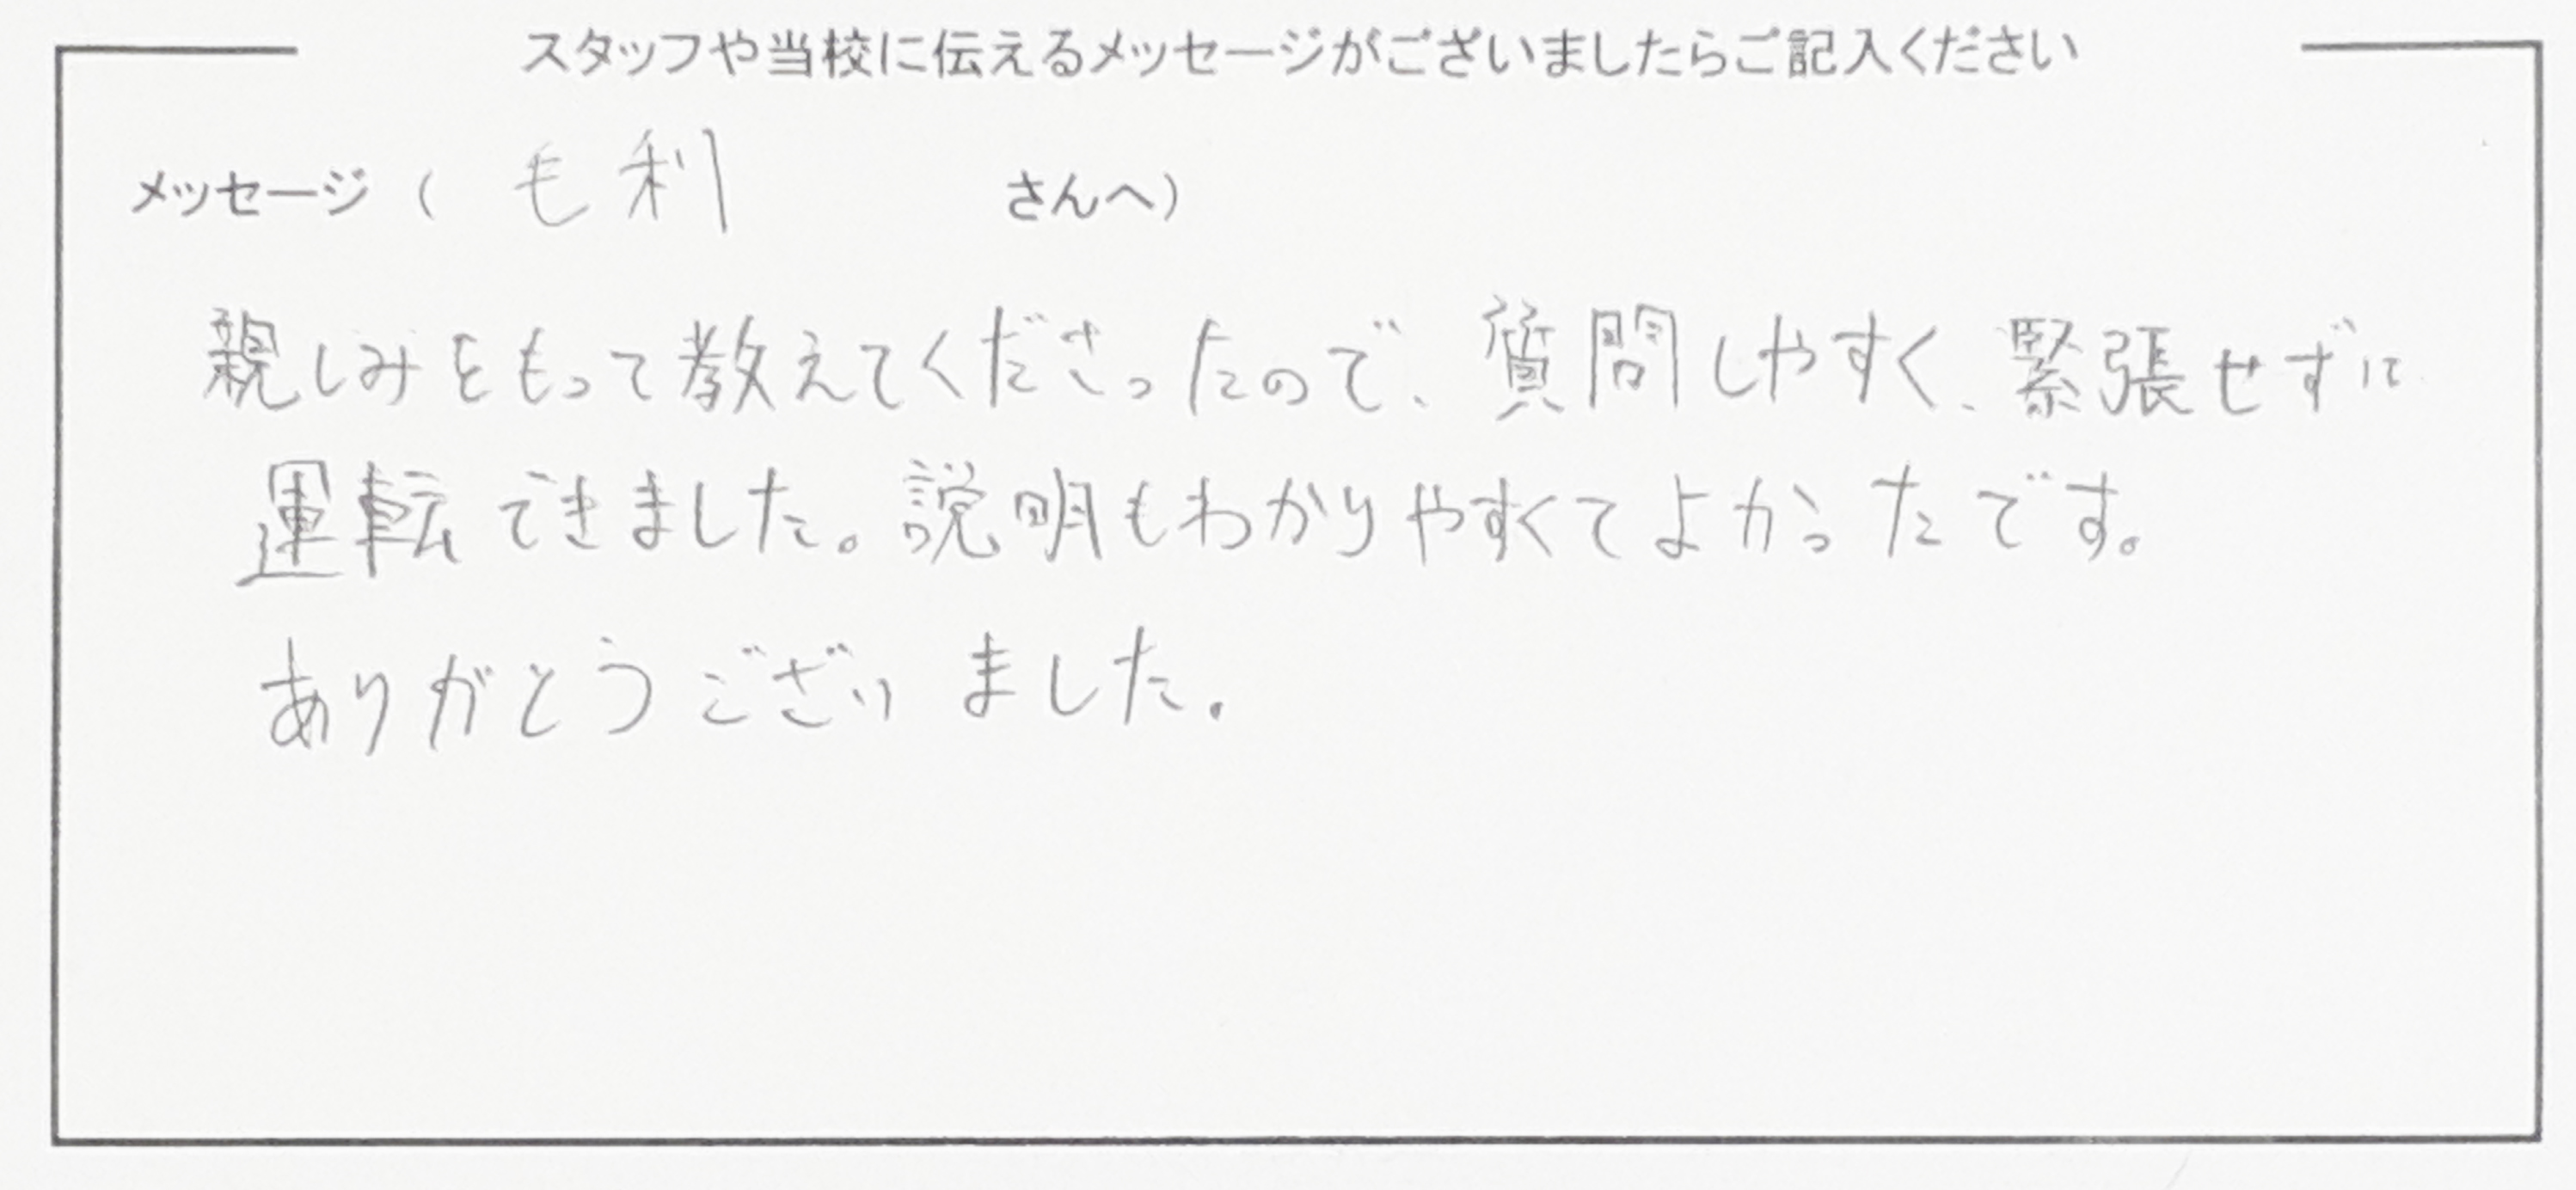 スタッフや当校に伝えるメッセージがございましたらご記入ください
メッセージ（ 毛利 さんへ）
親しみをもって教えてくださったので、質問しやすく、緊張せずに
運転できました。説明もわかりやすくてよかったです。
ありがとうございました.